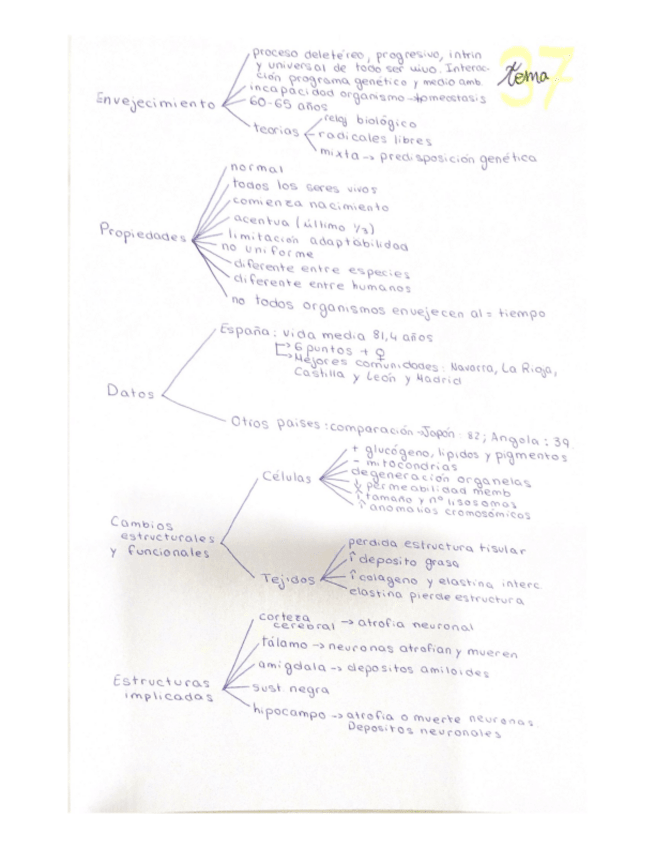 37
tema
Envejecimiento
proceso deletéreo, progresivo, intrin
y universal de todo ser vivo. Interac-
ción programa genético y medio amb.
incapacidad organismo → homeostasis
60-65 años
teorías
reloj biológico
radicales libres
mixta → predisposición genética
Propiedades
normal
todos los seres vivos
comienza nacimiento
acentua (último 1/3)
limitación adaptabilidad
no uniforme
diferente entre especies
diferente entre humanos
no todos organismos envejecen al = tiempo
Datos
España: vida media 81,4 años
→ 6 puntos + ♀
→ Mejores comunidades: Navarra, La Rioja,
Castilla y León y Madrid
Otros paises: comparación → Japón: 82; Angola: 39
Cambios
estructurales
y funcionales
Células
+ glucógeno, lípidos y pigmentos
- mitocondrias
degeneración organelas
↓ permeabilidad memb
↑ tamaño y nº lisosomas
↑ anomalías cromosómicas
Tejidos
perdida estructura tisular
↑ deposito grasa
↑ colágeno y elastina interc
elastina pierde estructura
Estructuras
implicadas
corteza
cerebral → atrofia neuronal
tálamo → neuronas atrofian y mueren
amígdala → depositos amiloides
sust. negra
hipocampo → atrofia o muerte neuronas
Depositos neuronales